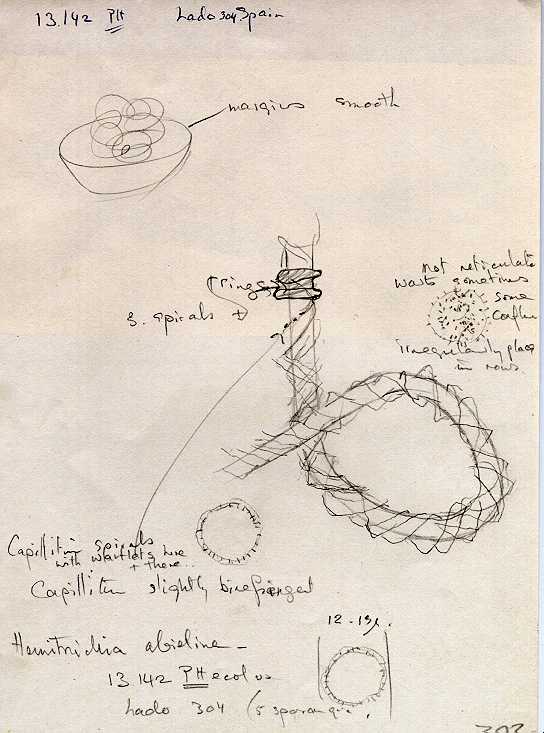 13.142 PH Lado 304 Spain
margins smooth
rings
3. spirals +
not reticulate
warts sometimes
some
conflu
irregularily place
in rows
Capillitium spirals
with wartlets here
+ there..
Capillitium slightly birefringent
12-13µ.
Hemitrichia abietina -
13 142 PH ecol os
Lado 304 (5 sporangia,